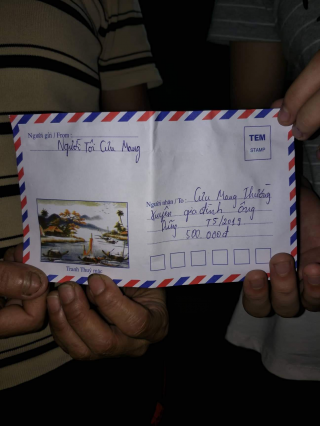 Người gửi / From :
Người Tôi Cưu Mang
TEM
STAMP
Người nhận / To : Cưu Mang Thường
Xuyên gia đình ông
Dũng T5/2019
500.000đ
Tranh Thuỷ